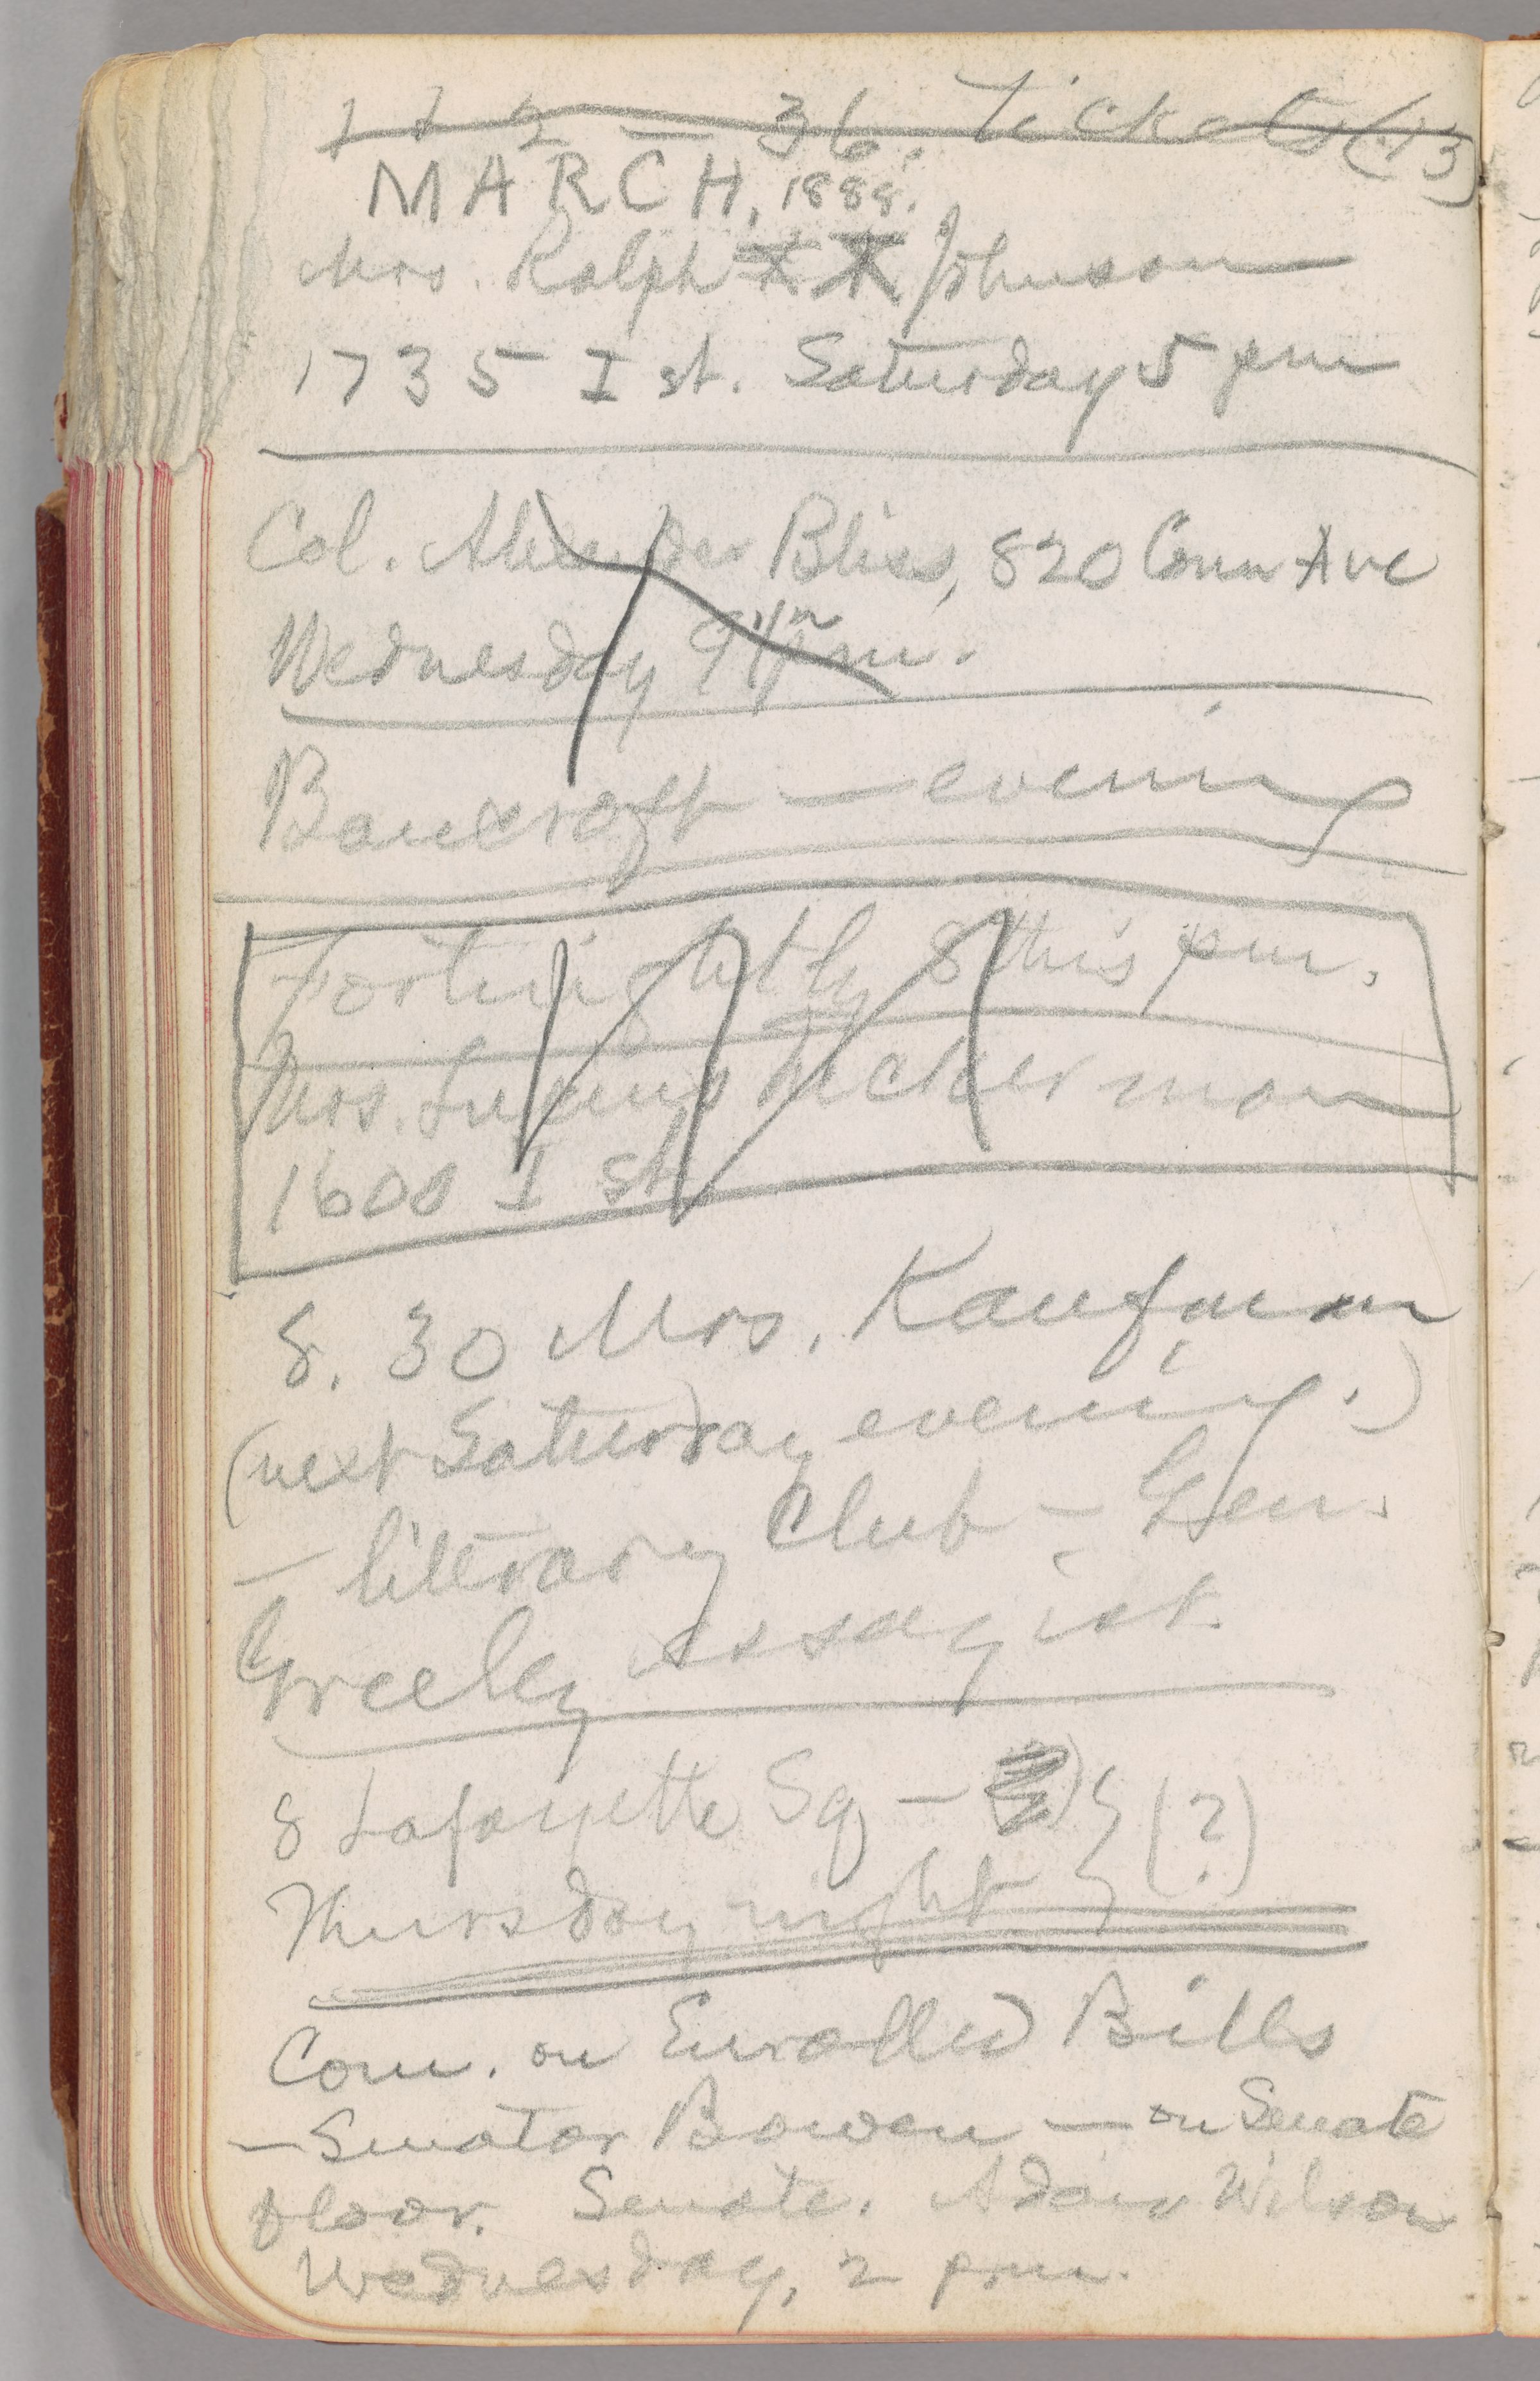 1 1 2 — 36. Tickets (13)
MARCH, 1888.
Mrs. Ralph Johnson
1735 I st. Saturday 5 pm
Col. Alexander Bliss, 820 Conn Ave
Wednesday 9 pm.
Bancroft — evening
Fortnightly 8 this pm.
Mrs. Tuckerman
1600 I st.
8.30 Mrs. Kaufman
(next Saturday evening.)
— literary Club — Gen.
Greeley essayist.
8 Lafayette Sq — (?)
Thursday night
Com. on Enrolled Bills
— Senator Bowen — on Senate
floor. Senate. Adair Wilson
Wednesday, 2 pm.